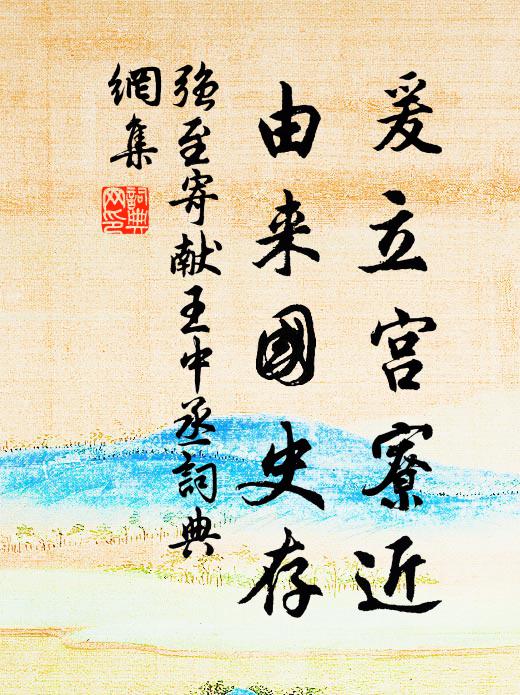 爰立宫寮近
由来國史存
强至寄献王中丞詞典
網集
詞典網印